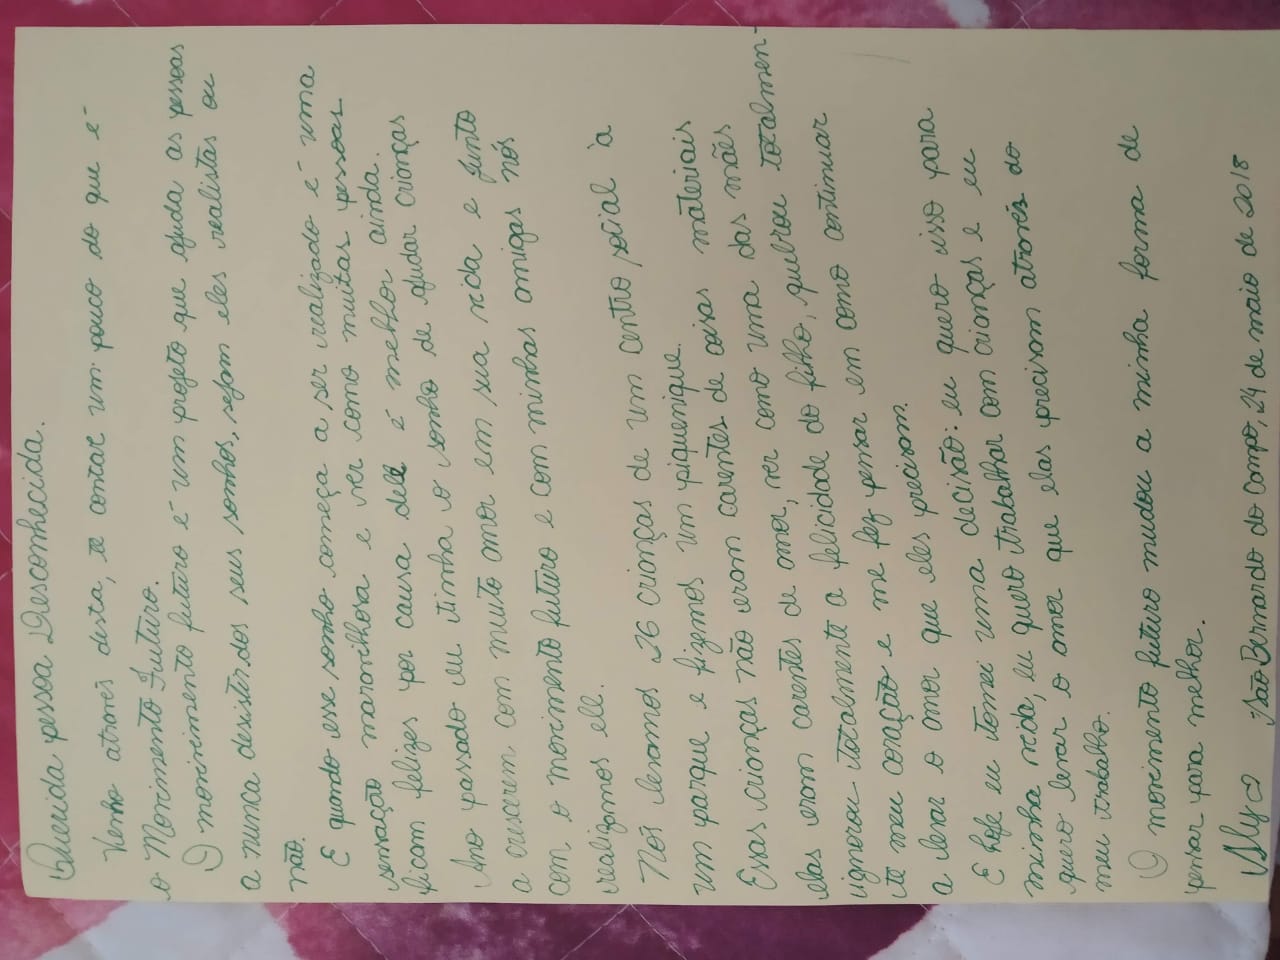 Querida pessoa Desconhecida.
Venho através desta, te contar um pouco do que é
o Movimento Futuro.
O movimento futuro é um projeto que ajuda as pessoas
a nunca desistir dos seus sonhos, sejam eles realistas ou
não.
E quando esse sonho começa a ser realizado é uma
sensação maravilhosa e ver como muitas pessoas
ficam felizes por causa dele é melhor ainda.
Ano passado eu tinha o sonho de ajudar crianças
a crescerem com muito amor em sua vida e junto
com o movimento futuro e com minhas amigas nós
realizamos ele.
Nós levamos 26 crianças de um centro social à
um parque e fizemos um piquenique.
Essas crianças não eram carentes de coisas materiais
elas eram carentes de amor, ver como uma das mães
ignorou totalmente a felicidade do filho, quebrou totalmen-
te meu coração e me fez pensar em como continuar
a levar o amor que eles precisam.
E hoje eu tomei uma decisão: eu quero isso para
minha vida, eu quero trabalhar com crianças e eu
quero levar o amor que elas precisam através do
meu trabalho.
O movimento futuro mudou a minha forma de
pensar para melhor.
São Bernardo do Campo, 24 de maio de 2018